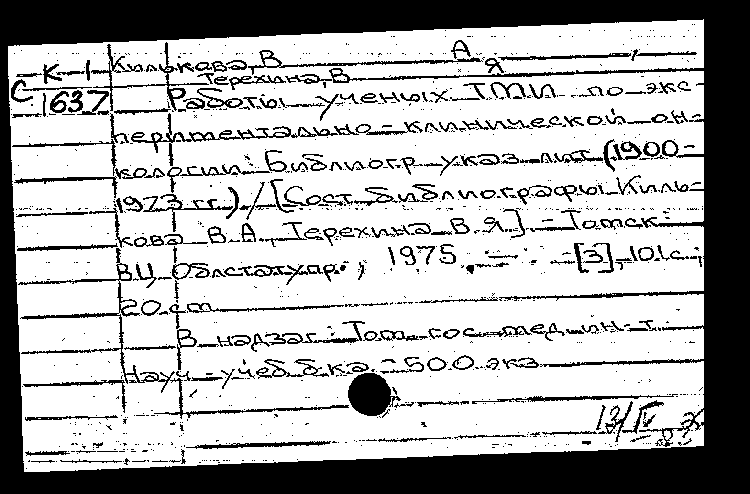 К-1 Килькова, В А
С Терехина, В Я
1637 Работы ученых ТМИ по экс-
периментально-клинической он-
кологии: Библиогр указ лит (1900-
1973 гг.) / [Сост библиографы Киль-
кова В.А, Терехина В.Я]. - Томск:
ВЦ Облстатупр., 1975. - [3], 101с;
20 cm
В надзаг: Том. гос. мед. ин-т.
Науч-учеб. б-ка. - 500 экз
13/IV